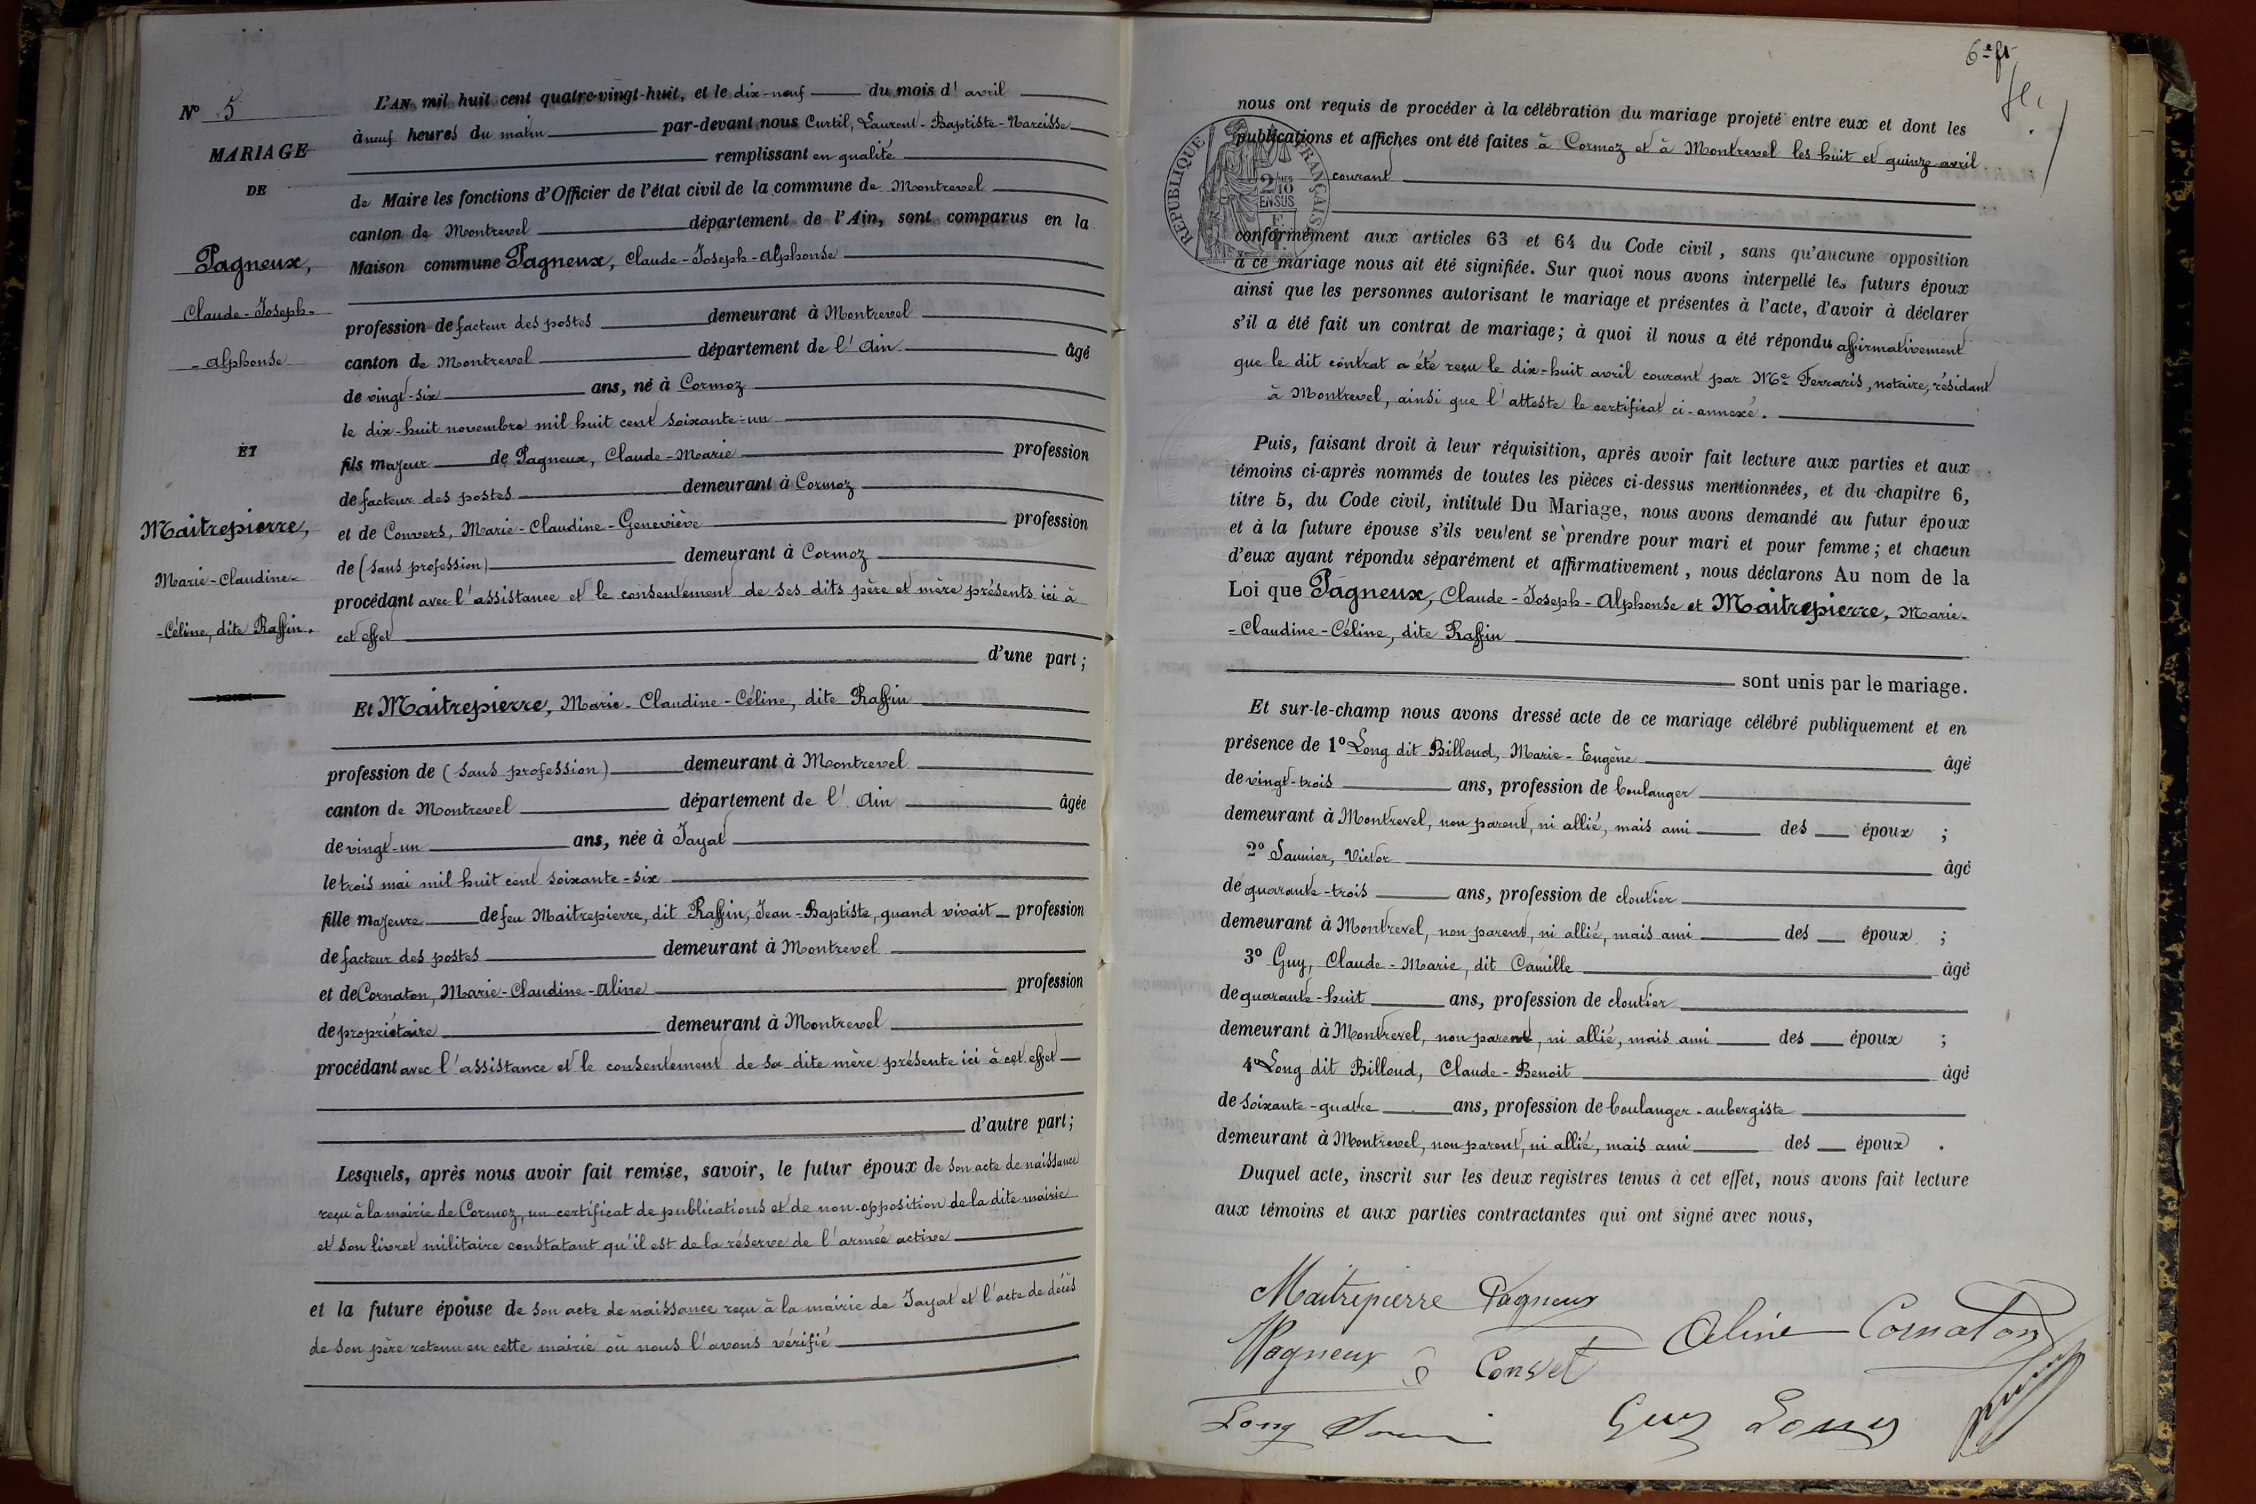 N° 5
MARIAGE
DE
Pagneux,
Claude-Joseph-
-Alphonse
ET
Maitrepierre,
Marie-Claudine-
-Céline, dite Raffin.
L'AN mil huit cent quatre-vingt-huit, et le dix-neuf du mois d'avril
à neuf heures du matin par-devant nous Curtil, Laurent-Baptiste-Narcisse
remplissant en qualité
de Maire les fonctions d'Officier de l'état civil de la commune de Montrevel
canton de Montrevel département de l'Ain, sont comparus en la
Maison commune Pagneux, Claude-Joseph-Alphonse
profession de facteur des postes demeurant à Montrevel
canton de Montrevel département de l'Ain âgé
de vingt-six ans, né à Cormoz
le dix-huit novembre mil huit cent soixante-un
fils majeur de Pagneux, Claude-Marie profession
de facteur des postes demeurant à Cormoz
et de Convers, Marie-Claudine-Geneviève profession
de (sans profession) demeurant à Cormoz
procédant avec l'assistance et le consentement de ses dits père et mère présents ici à
cet effet
d'une part;
Et Maitrepierre, Marie-Claudine-Céline, dite Raffin
profession de (sans profession) demeurant à Montrevel
canton de Montrevel département de l'Ain âgée
de vingt-un ans, née à Jayat
le trois mai mil huit cent soixante-six
fille majeure de feu Maitrepierre, dit Raffin, Jean-Baptiste, quand vivait profession
de facteur des postes demeurant à Montrevel
et de Cornaton, Marie-Claudine-Aline profession
de propriétaire demeurant à Montrevel
procédant avec l'assistance et le consentement de sa dite mère présente ici à cet effet
d'autre part;
Lesquels, après nous avoir fait remise, savoir, le futur époux de son acte de naissance
reçu à la mairie de Cormoz, un certificat de publications et de non-opposition de la dite mairie
et son livret militaire constatant qu'il est de la réserve de l'armée active
et la future épouse de son acte de naissance reçu à la mairie de Jayat et l'acte de décès
de son père retenu en cette mairie où nous l'avons vérifié
6e ft
nous ont requis de procéder à la célébration du mariage projeté entre eux et dont les
publications et affiches ont été faites à Cormoz et à Montrevel les huit et quinze avril
courant
RÉPUBLIQUE FRANÇAISE
2/10
EN SUS
conformément aux articles 63 et 64 du Code civil, sans qu'aucune opposition
à ce mariage nous ait été signifiée. Sur quoi nous avons interpellé les futurs époux
ainsi que les personnes autorisant le mariage et présentes à l'acte, d'avoir à déclarer
s'il a été fait un contrat de mariage; à quoi il nous a été répondu affirmativement
que le dit contrat a été reçu le dix-huit avril courant par Me Ferraris, notaire, résidant
à Montrevel, ainsi que l'atteste le certificat ci-annexé.
Puis, faisant droit à leur réquisition, après avoir fait lecture aux parties et aux
témoins ci-après nommés de toutes les pièces ci-dessus mentionnées, et du chapitre 6,
titre 5, du Code civil, intitulé Du Mariage, nous avons demandé au futur époux
et à la future épouse s'ils veulent se prendre pour mari et pour femme; et chacun
d'eux ayant répondu séparément et affirmativement, nous déclarons Au nom de la
Loi que Pagneux, Claude-Joseph-Alphonse et Maitrepierre, Marie-
-Claudine-Céline, dite Raffin
sont unis par le mariage.
Et sur-le-champ nous avons dressé acte de ce mariage célébré publiquement et en
présence de 1° Long dit Billoud, Marie-Eugène âgé
de vingt-trois ans, profession de boulanger
demeurant à Montrevel, non parent, ni allié, mais ami des époux ;
2° Saunier, Victor âgé
de quarante-trois ans, profession de cloutier
demeurant à Montrevel, non parent, ni allié, mais ami des époux ;
3° Guy, Claude-Marie, dit Camille âgé
de quarante-huit ans, profession de cloutier
demeurant à Montrevel, non parent, ni allié, mais ami des époux ;
4° Long dit Billoud, Claude-Benoit âgé
de soixante-quatre ans, profession de boulanger-aubergiste
demeurant à Montrevel, non parent, ni allié, mais ami des époux .
Duquel acte, inscrit sur les deux registres tenus à cet effet, nous avons fait lecture
aux témoins et aux parties contractantes qui ont signé avec nous,
Maitrepierre Pagneux
Pagneux Convet Aline Cornaton
Long Guy Long